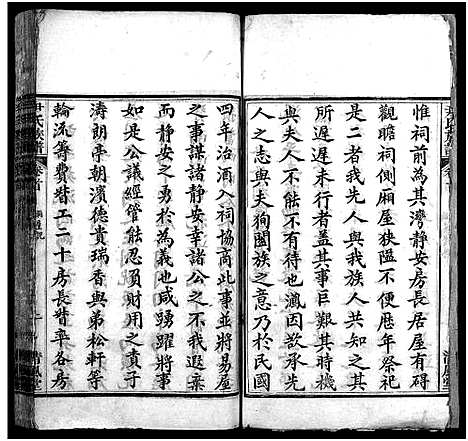 惟祠前為其灣靜安房長居屋有碍
觀瞻祠側廂屋狹隘不便歷年祭祀
是二者我先人與我族人共知之共
與夫人不能不有待也溉因欲承先
人之意與夫狥闔族之意乃於民國
四年治酒入祠協商此事並將易屋
之事謀諸靜安幸諸公之不我遐棄
而靜安亦好為義也咸踴躍將事
如是公議經管能忍負財用之士
濤朗亭朝濱德貴瑞香與弟松軒等
輪流籌費督工二十房長督率各房
尹氏族譜
卷首
清風堂